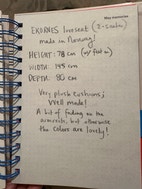 May memories
EKORNES loveseat (2-seater)
made in Norway!
HEIGHT: 78 cm (w/ feet on)
WIDTH: 145 cm
DEPTH: 80 cm
Very plush cushions;
Well made!
A bit of fading on the
armrests, but otherwise
the colors are lovely!